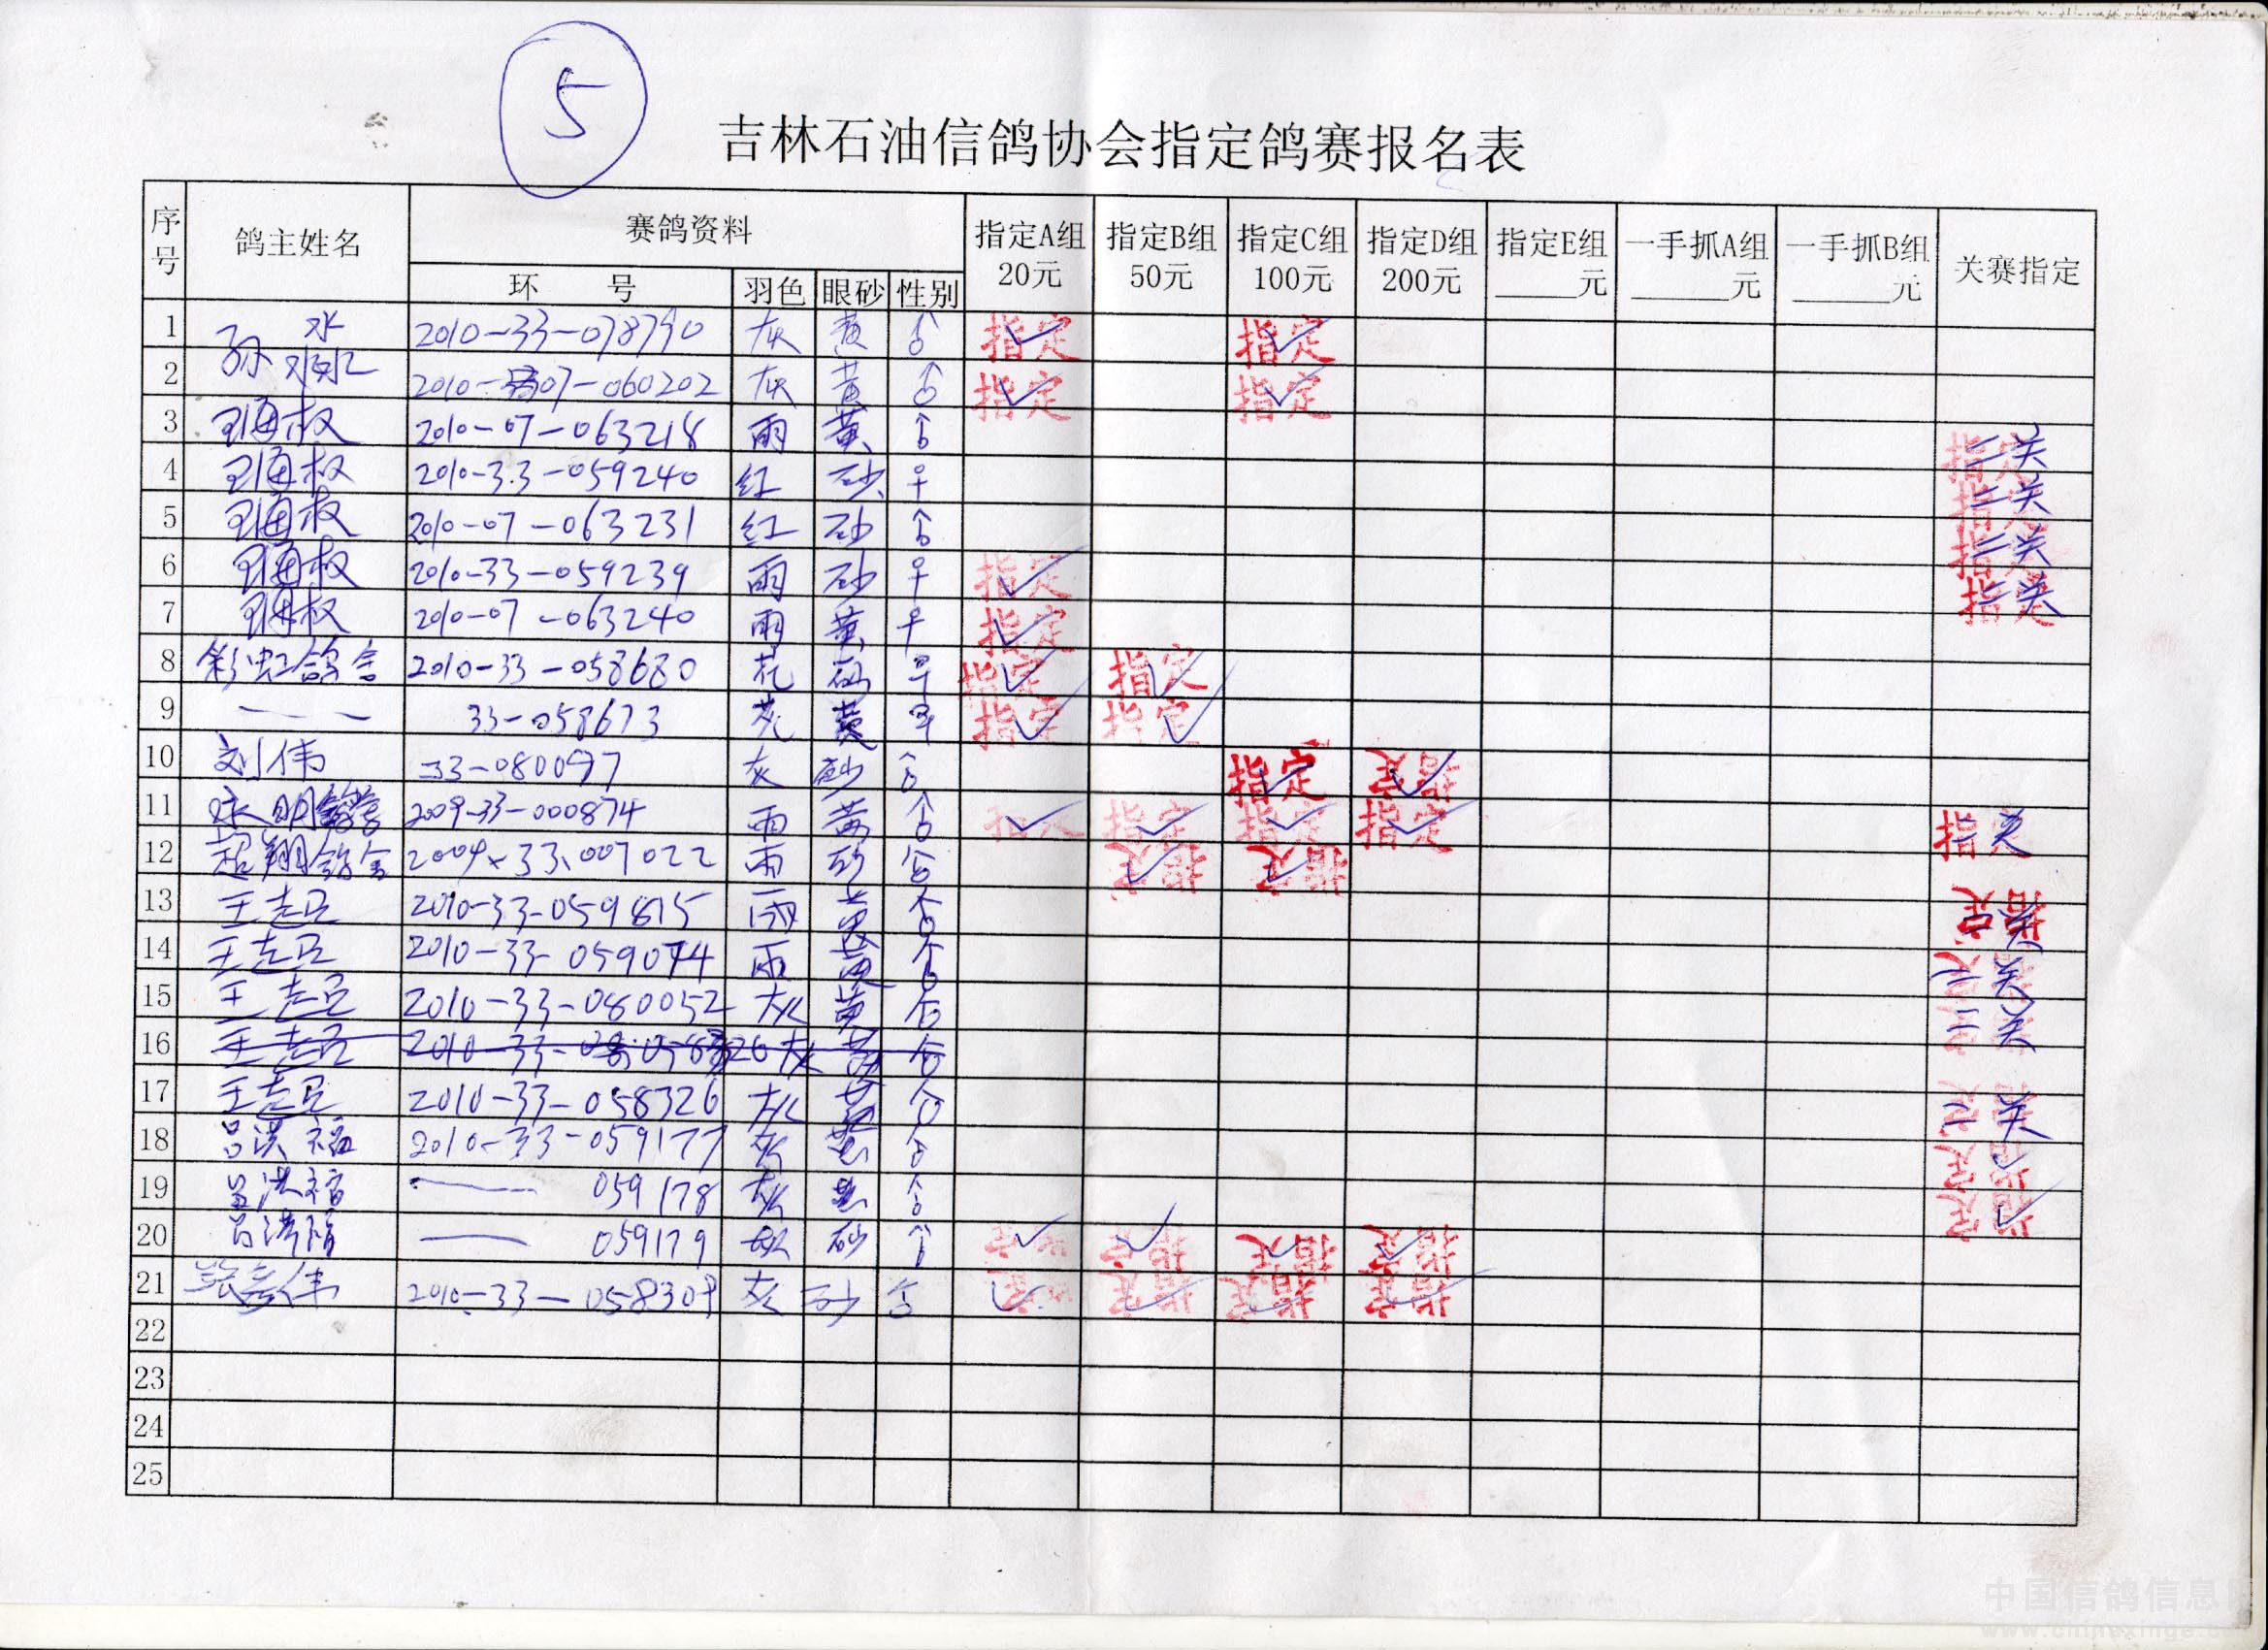 5
吉林石油信鸽协会指定鸽赛报名表
序号 鸽主姓名 赛鸽资料 指定A组 20元 指定B组 50元 指定C组 100元 指定D组 200元 指定E组 ____元 一手抓A组 ____元 一手抓B组 ____元 关赛指定
环 号 羽色 眼砂 性别
1 孙 水 2010-33-078790 灰 黄 ♂ 指定 指定
2 2010-07-060202 灰 黄 ♂ 指定 指定
3 王海权 2010-07-063218 雨 黄 ♂ 指定 二关
4 王海权 2010-33-059240 红 砂 ♀ 指定 二关
5 王海权 2010-07-063231 红 砂 ♂ 指定 二关
6 王海权 2010-33-059239 雨 砂 ♀ 指定 指定 关
7 王海权 2010-07-063240 雨 黄 ♀ 指定
8 彩虹鸽舍 2010-33-058680 花 砂 ♀ 指定 指定
9 — — 33-058673 花 黄 ♀ 指定 指定
10 刘伟 33-080097 灰 砂 ♂ 指定 指定
11 2009-33-000874 雨 黄 ♂ 指定 指定 指定 指定 指 关
12 超翔鸽舍 2009.33.007022 雨 砂 ♂ 指定 指定
13 王志臣 2010-33-059815 雨 黄 ♂ 指定 二关
14 王志臣 2010-33-059074 雨 黄 ♂ 二关
15 王志臣 2010-33-080052 灰 黄 ♂ 二关
16 王志臣 2010-33-058326 灰 黄 ♂
17 王志臣 2010-33-058326 灰 黄 ♂ 指定 二关
18 吕洪福 2010-33-059177 灰 黄 ♂ 指定
19 吕洪福 — 059178 灰 黄 ♂ 指定
20 吕洪福 — 059179 灰 砂 ♂ 指定 指定 指定 指定
21 张彦伟 2010-33-058309 灰 砂 ♂ 指定 指定 指定 指定
22
23
24
25
中国信鸽信息网
www.chinaxinge.com